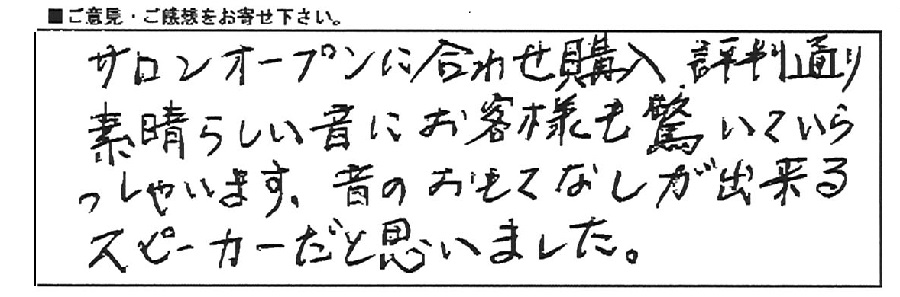 ■ご意見・ご感想をお寄せ下さい。
サロンオープンに合わせ購入 評判通り
素晴らしい音にお客様も驚いていら
っしゃいます。音のおもてなしが出来る
スピーカーだと思いました。